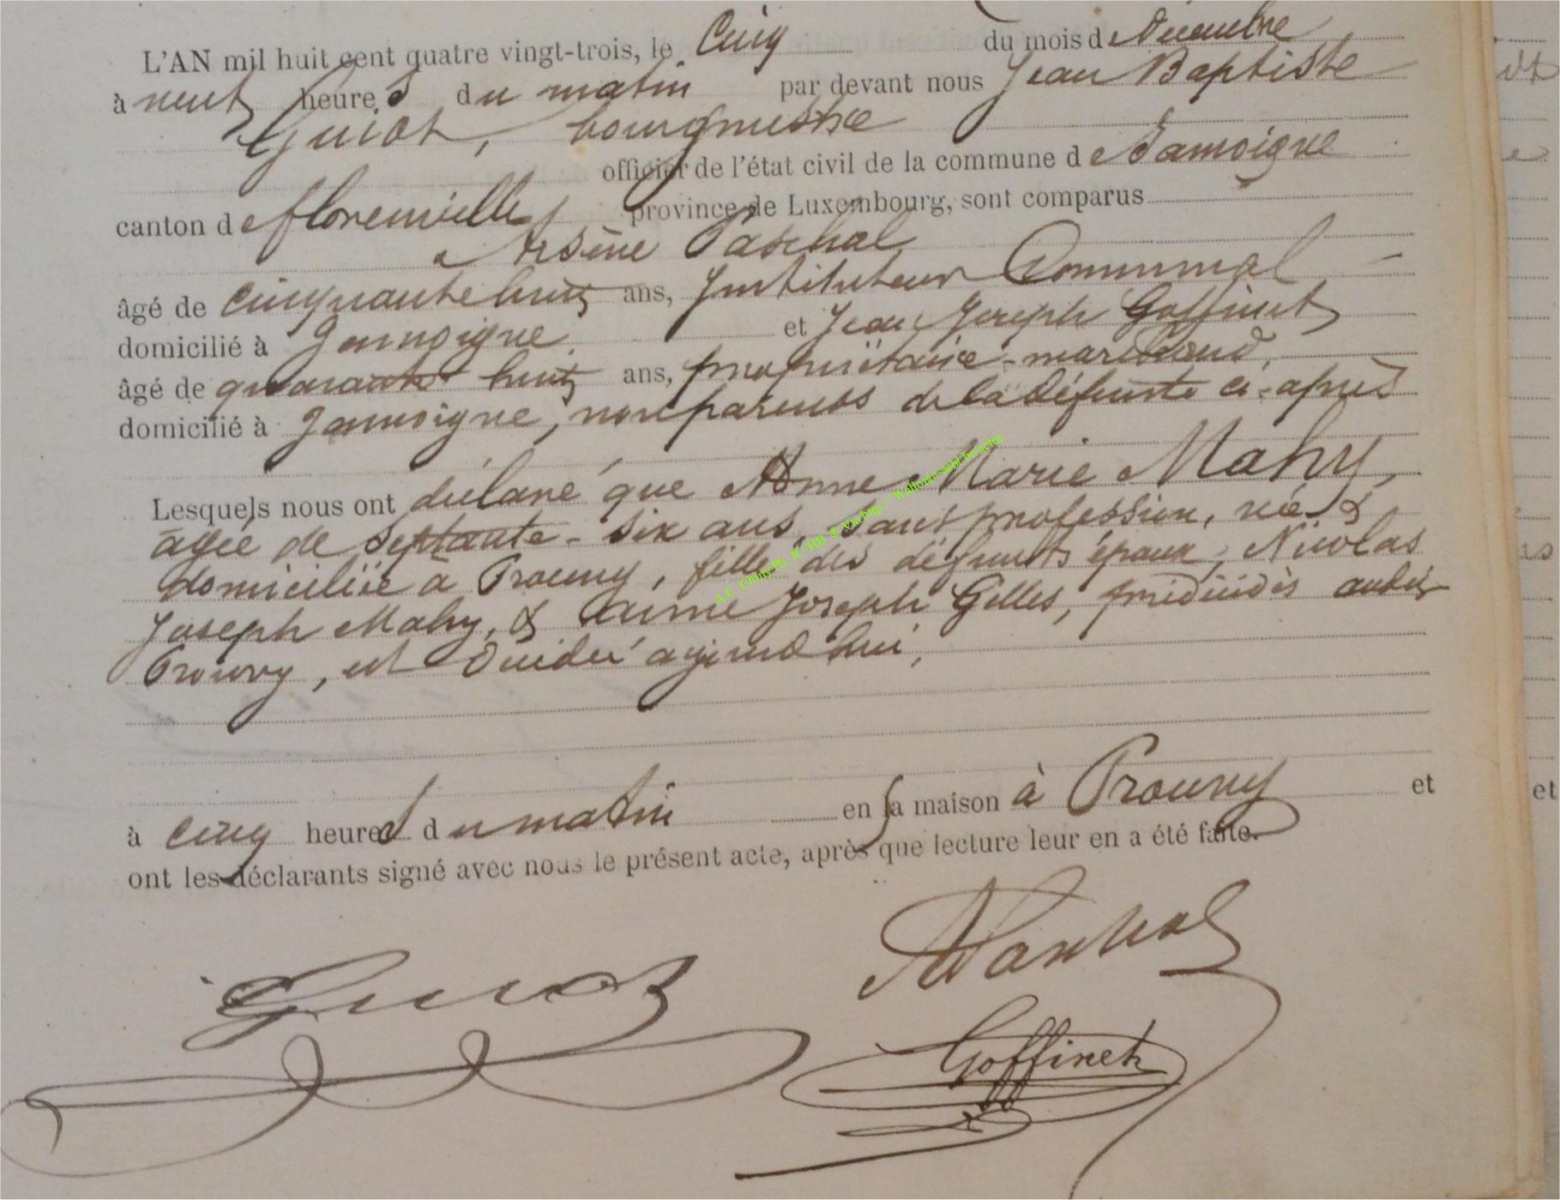 L'AN mil huit cent quatre vingt-trois, le Cinq du mois de Décembre
à neuf heures du matin par devant nous Jean Baptiste
Guiot, bourgmestre
officier de l'état civil de la commune de Jamoigne
canton de Florenville, province de Luxembourg, sont comparus
Arsène Paschal
âgé de cinquante huit ans, Instituteur Communal
domicilié à Jamoigne et Jean Joseph Goffinet
âgé de quarante huit ans, propriétaire-marchand,
domicilié à Jamoigne, non parents de la défunte ci-après
Lesquels nous ont déclaré que Anne Marie Mahy,
agée de septante-six ans, sans profession, née &
domiciliée à Prouvy, fille des défunts époux, Nicolas
Joseph Mahy, & Anne Joseph Gilles, prédécédés audit
Prouvy, est décédée aujourd'hui,
à cinq heures du matin en sa maison à Prouvy et
ont les déclarants signé avec nous le présent acte, après que lecture leur en a été faite.
APaschal
Guiot
Goffinet
et